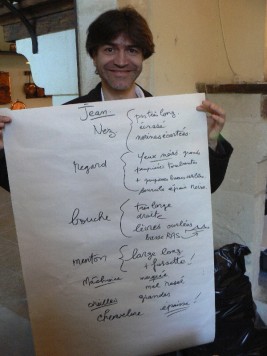 Jean:
Nez
pas très long
écrasé
narines écartées
Regard
Yeux noirs grands
paupières tombantes
+ paupières
sourcils épais noirs
bouche
très large
droite
lèvres ourlées
menton
large long
+ fossette!
Mâchoire
mal rasé
oreilles grandes
Chevelure épaisse!